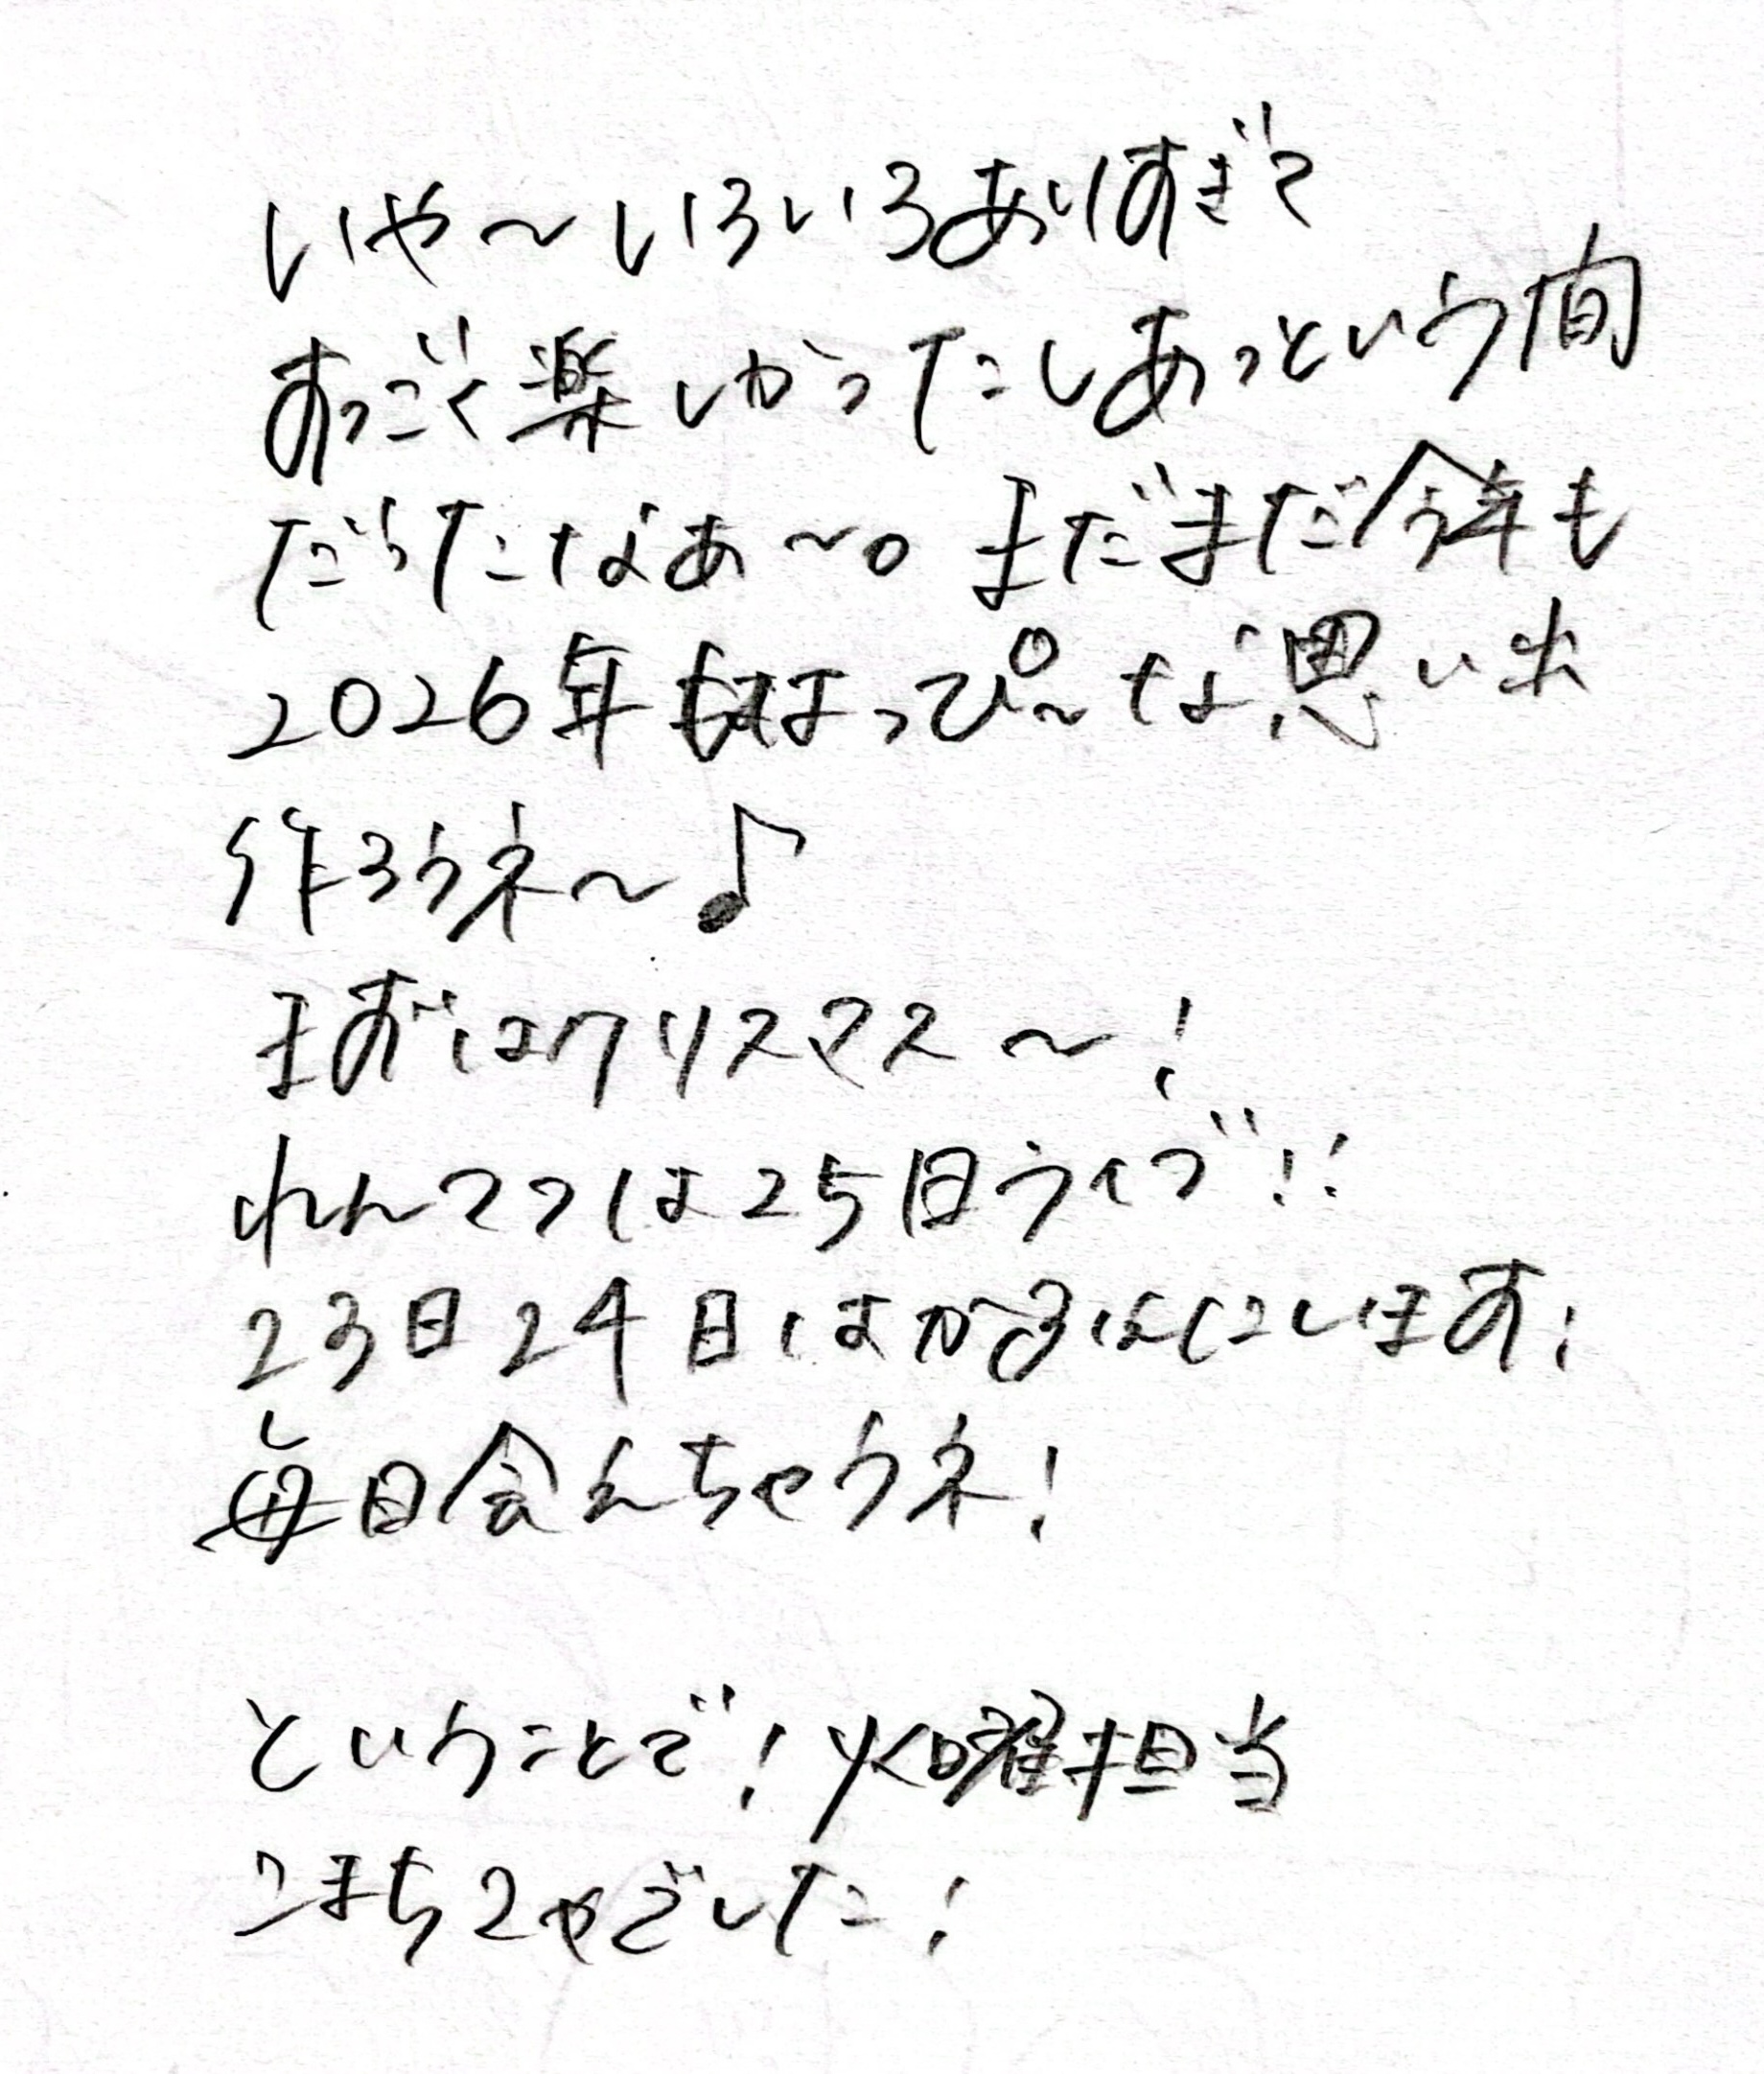 いや〜いろいろありすぎて
すっごく楽しかったしあっという間
だったなぁ〜。まだまだ今年も
2026年もはっぴ〜な思い出
作ろうネ〜♪
まずはクリスマス〜!
れんてつは25日ライブ!!
23日24日はかるはにいます!
毎日会えちゃうネ!
ということで!火曜担当
こまちみやでした!